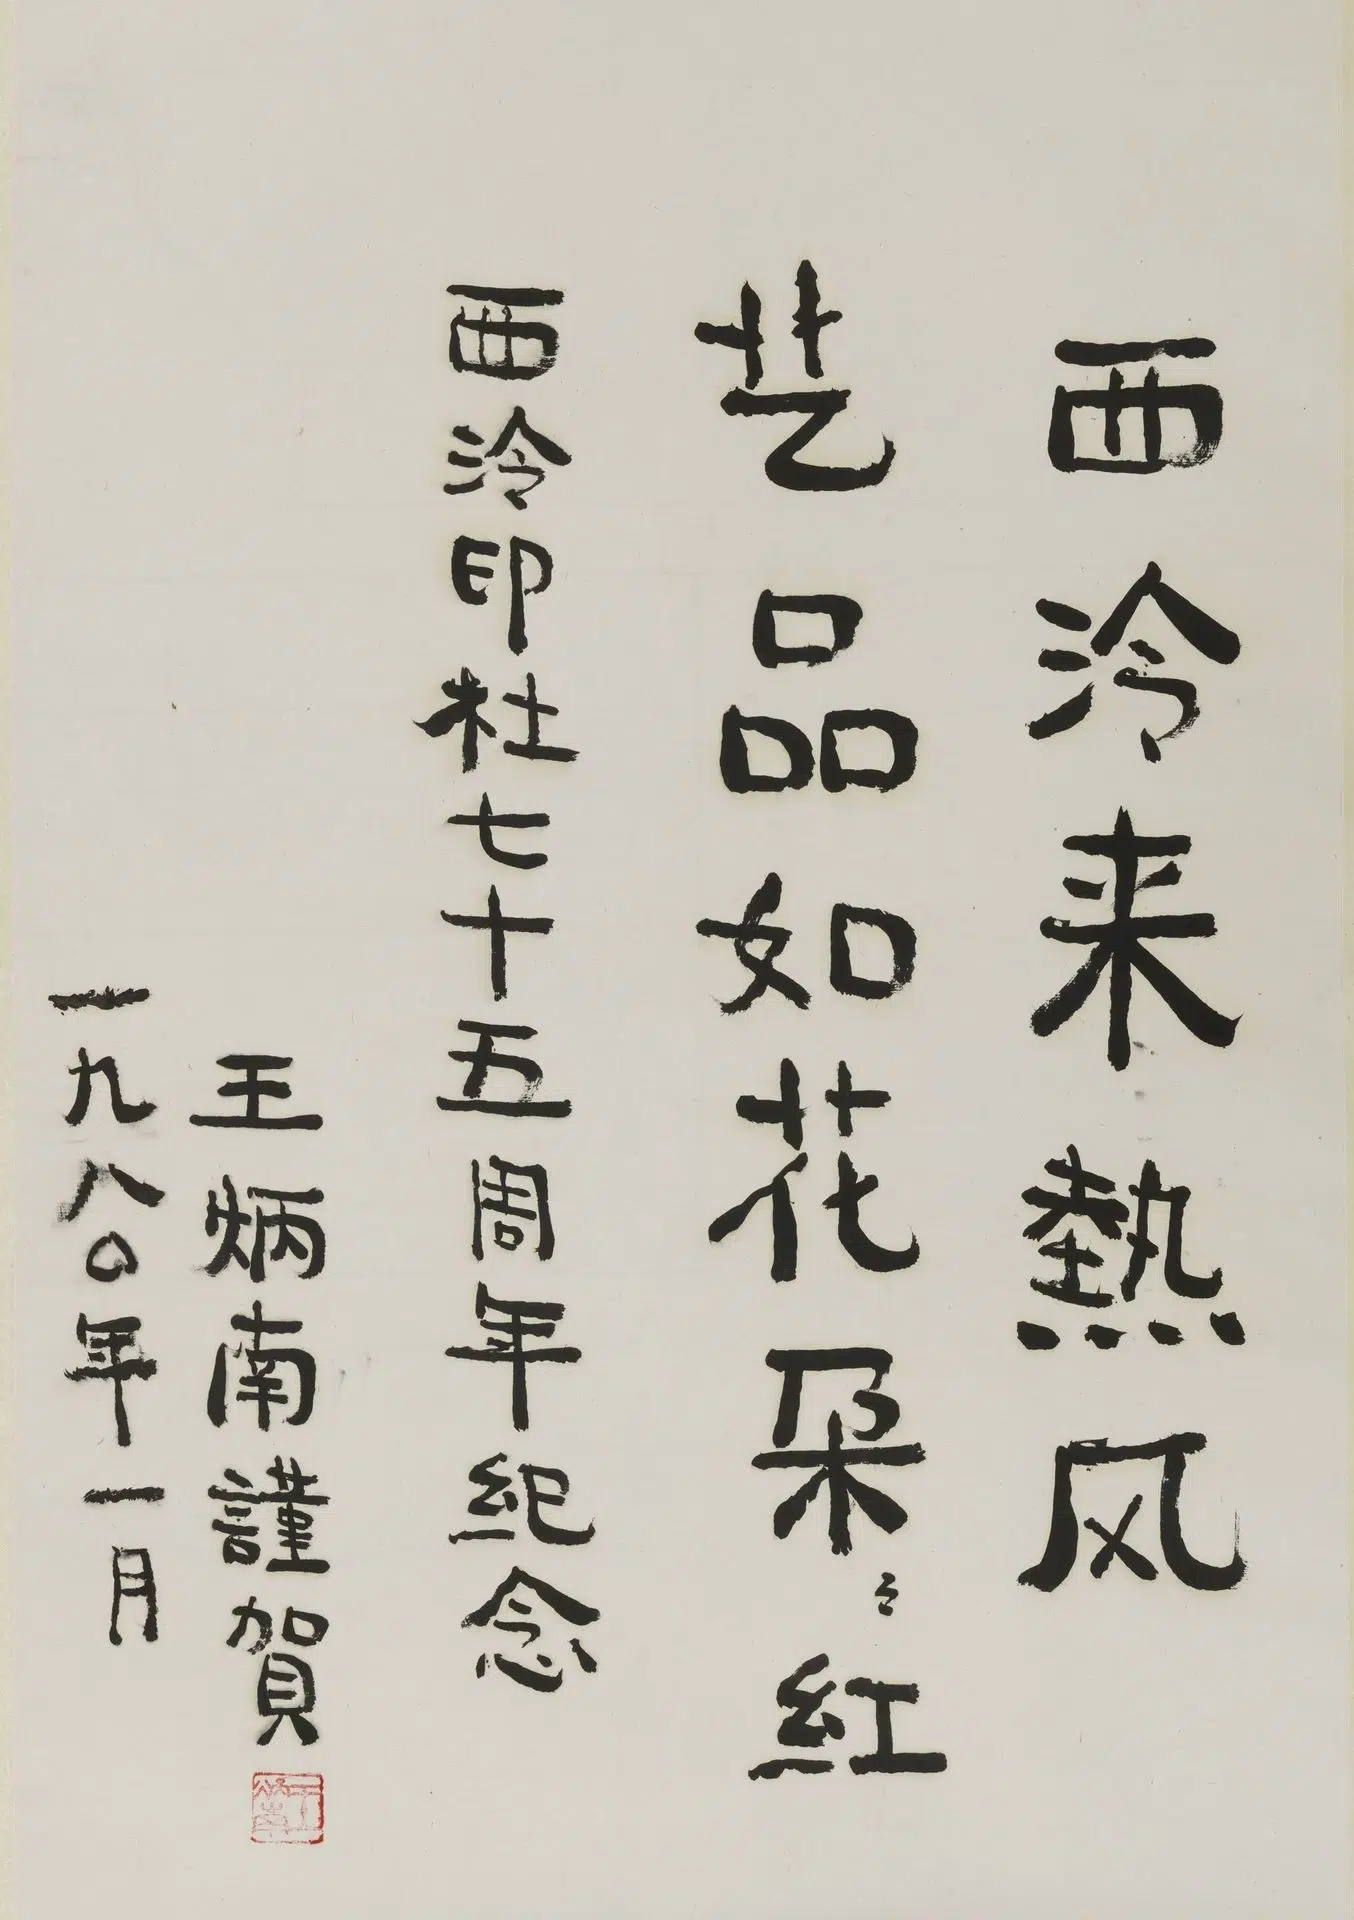 西泠来熱风
艺品如花朵〻紅
西泠印社七十五周年纪念
王炳南謹賀
一九八〇年一月